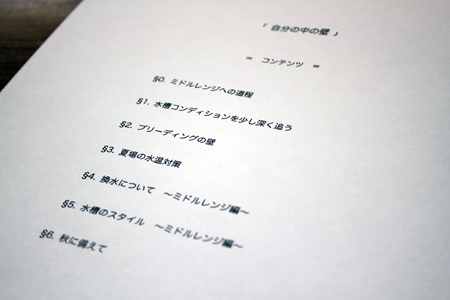 「 自分の中の壁 」
= コンテンツ =
§0. ミドルレンジへの道程
§1. 水槽コンディションを少し深く追う
§2. ブリーディングの壁
§3. 夏場の水温対策
§4. 換水について ～ミドルレンジ編～
§5. 水槽のスタイル ～ミドルレンジ編～
§6. 秋に備えて